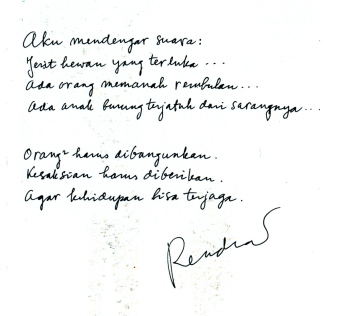 Aku mendengar suara:
Jerit hewan yang terluka ...
Ada orang memanah rembulan ...
Ada anak burung terjatuh dari sarangnya ...
Orang² harus dibangunkan.
Kesaksian harus diberikan.
Agar kehidupan bisa terjaga.
Rendra